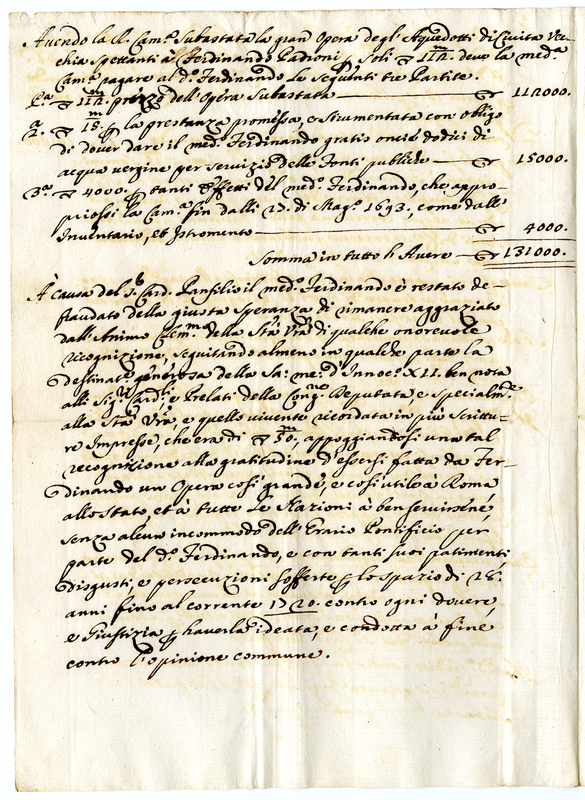 Avendo la R. Cam.ª Subastata la gran Opera degl'Aquedotti di Civita Vec-
chia spettanti à Ferdinando Padroni p soli ∇ 112.m devo la med.ª
Cam.ª pagare al d.º Ferdinando le seguenti tre Partite.
P.ª ∇ 112.m prezzo dell'Opera Subastata — ∇ 112000.
2.ª ∇ 15.m p la prestanza promessa, e strumentata con obligo
di dover dare il med.º Ferdinando gratis oncie dodici di
acqua vergine per servizio delle Fonti publiche — ∇ 15000.
3.ª ∇ 4000. p tanti effetti del med.º Ferdinando, che appro-
priossi la Cam.ª fin dalli 27. di Mag.º 1693, come dall'
Inventario, et Istromento — ∇ 4000.
Somma in tutto h Avere — ∇ 131000.
À causa del S.r Card. Panfilio il med.º Ferdinando è restato de-
fraudato della giusta speranza di rimanere aggraziato
dall'Animo Clem.mo della Stà Vrã di qualche onorevole
ricognizione, seguitando almeno in qualche parte la
destinata generosa della Sa: me: d'Innoc.º XII. ben nota
alli Sig.ri Card.li e Prelati della Cong.ne Deputata, e specialm.te
alla Stà Vrã, e quello vivente ricordata in più Scrittu-
re Impresse, che era di ∇ 30.m, appoggiandosi una tal
recognizione alla gratitudine d'essersi fatta da Fer-
dinando un Opera così grande, e così utile à Roma
allo Stato, et à tutte le Nazioni à ben servirsene,
senza alcun incommodo dell'Erario Pontificio per
parte del d.º Ferdinando, e con tanti suoi patimenti
disgusti, e persecuzioni sofferte p lo spazio di 28.
anni fino al corrente 1720. contro ogni dovere,
e Giustizia p haverla ideata, e condotta à fine
contro l'opinione commune.